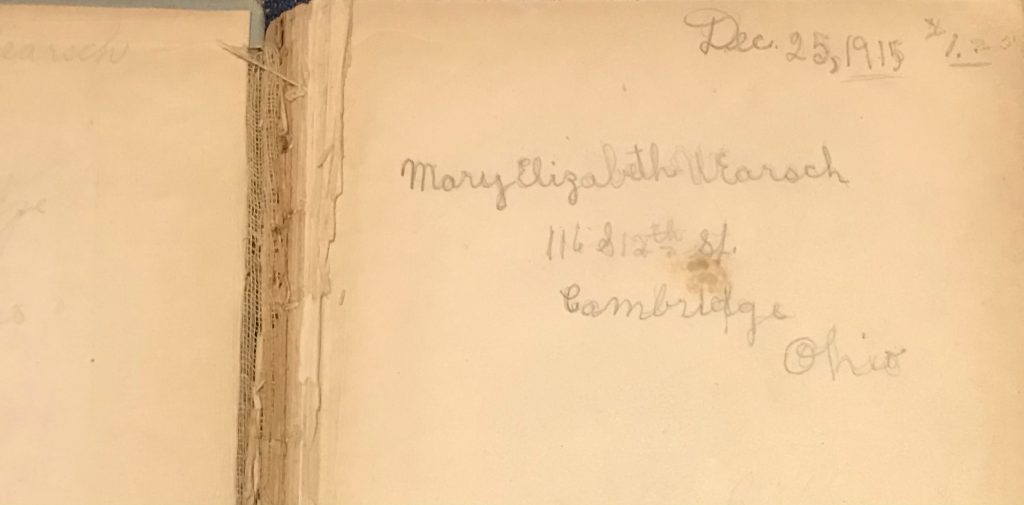 earsch
Dec. 25, 1915
Mary Elizabeth Wearsch
116 S 12th St.
Cambridge
Ohio